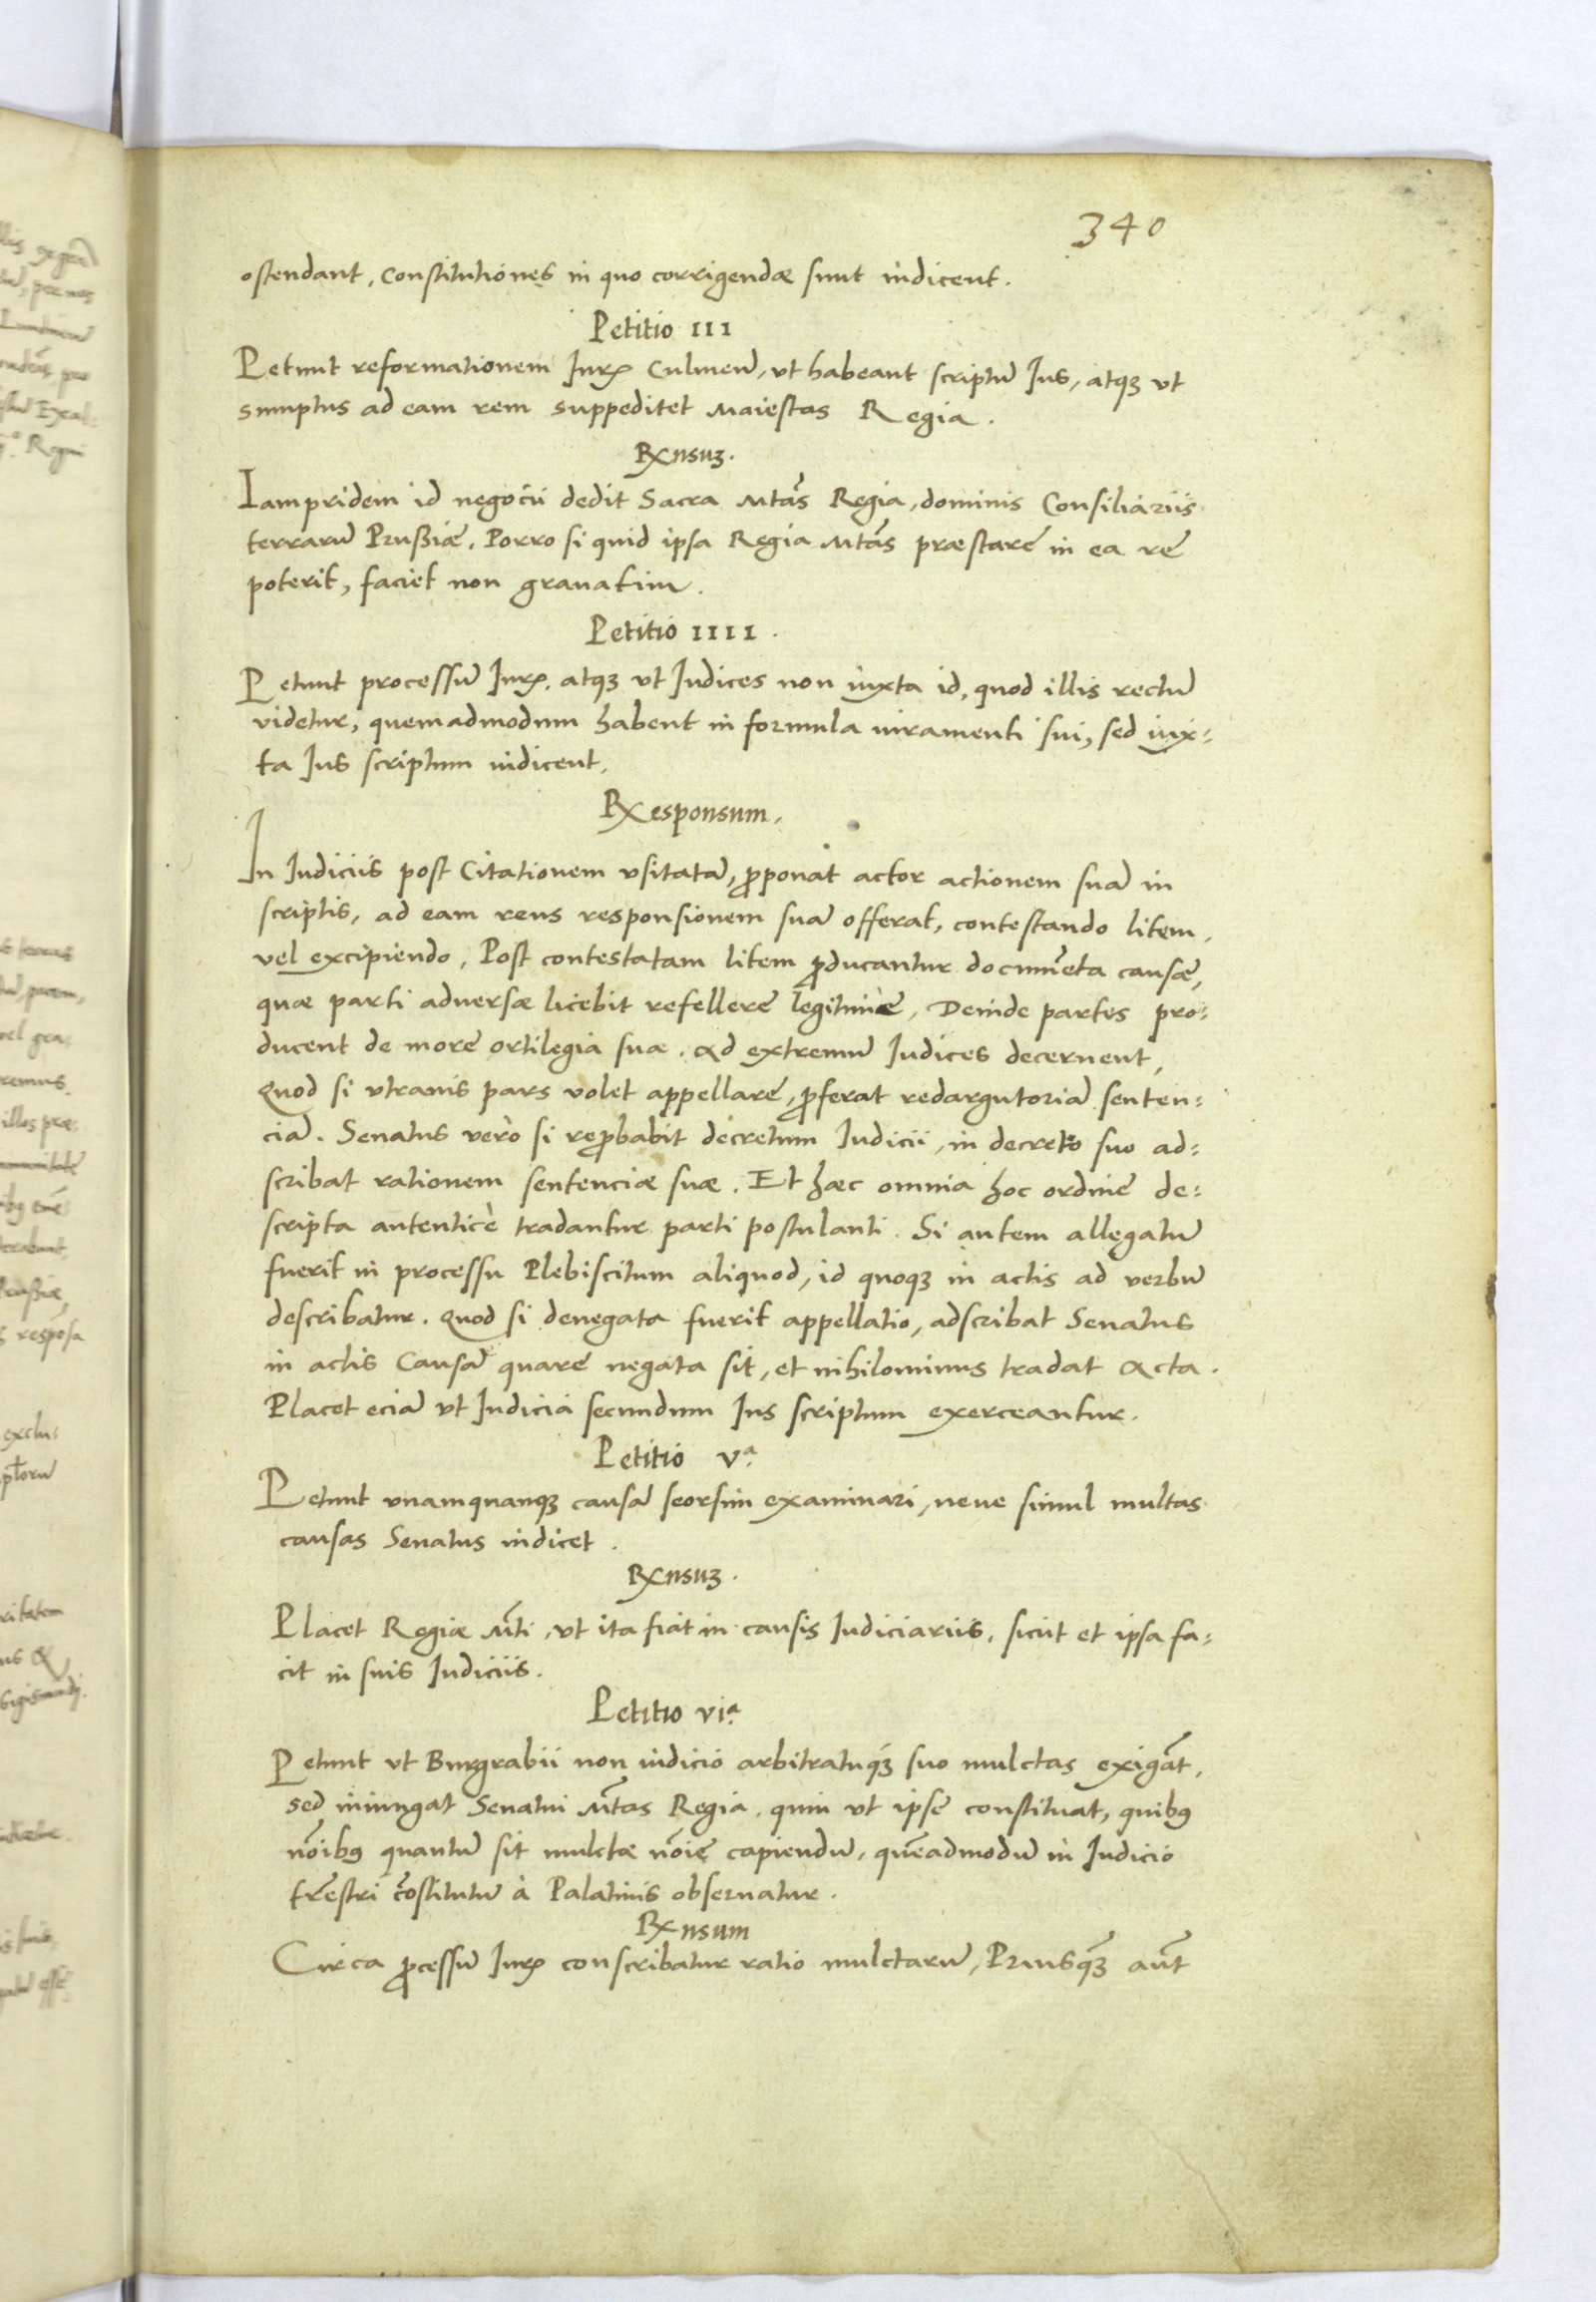 340
ostendant, Constitutiones in quo corrigendæ sunt indicent.
Petitio III
Petunt reformationem Iurꝭ Culmeñ, vt habeant scriptũ Ius, atqꝫ vt
sumptus ad eam rem suppeditet Maiestas Regia.
Rꝭnsuꝫ.
Iampridem id negocii dedit Sacra Mtãs Regia, dominis Consiliariis
terrarũ Prußiæ. Porro si quid ipsa Regia Mtãs præstare in ea re
poterit, faciet non grauatim.
Petitio IIII.
Petunt processũ Iurꝭ. atqꝫ vt Iudices non iuxta id, quod illis rectũ
videtur, quemadmodum habent in formula iuramenti sui, sed iux:
ta Ius scriptum iudicent,
Responsum,
In Iudiciis post Citationem vsitatã, ꝓponat actor actionem suã in
scriptis, ad eam reus responsionem suã offerat, contestando litem,
vel excipiendo, Post contestatam litem ꝓducantur documẽta causæ,
quæ parti aduersæ licebit refellere legitimè, Deinde partes pro:
ducent de more ortilegia sua. Ad extremũ Iudices decernent,
Quod si vtrauis pars volet appellare, ꝓferat redargutoriã senten:
ciã. Senatus verò si reꝓbabit decretum Iudicii, in decreto suo ad:
scribat rationem sentenciæ suæ. Et hæc omnia hoc ordine de:
scripta autenticè tradantur parti postulanti. Si autem allegatũ
fuerit in processu Plebiscitum aliquod, id quoqꝫ in actis ad verbũ
describatur. Quod si denegata fuerit appellatio, adscribat Senatus
in actis Causã quare negata sit, et nihilominus tradat Acta.
Placet eciã vt Iudicia secundum Ius scriptum exerceantur.
Petitio Vᵃ.
Petunt vnamquanqꝫ causã seorsim examinari, neue simul multas
causas Senatus iudicet.
Rꝭnsuꝫ.
Placet Regiæ Mti, vt ita fiat in causis Iudiciariis, sicut et ipsa fa:
cit in suis Iudiciis.
Petitio VIᵃ.
Petunt vt Burgrabii non iudicio arbitratuqꝫ suo mulctas exigãt,
sed iniungat Senatui Mtãs Regia, quin vt ipse constituat, quibꝰ
nõibꝰ quantũ sit mulctæ nõie capiendũ, quẽadmodũ in Iudicio
trẽstri cõstitutũ à Palatinis obseruatur.
Rꝭnsum
Circa ꝓcessũ Iurꝭ conscribatur ratio mulctarũ, Priusqꝫ aũt